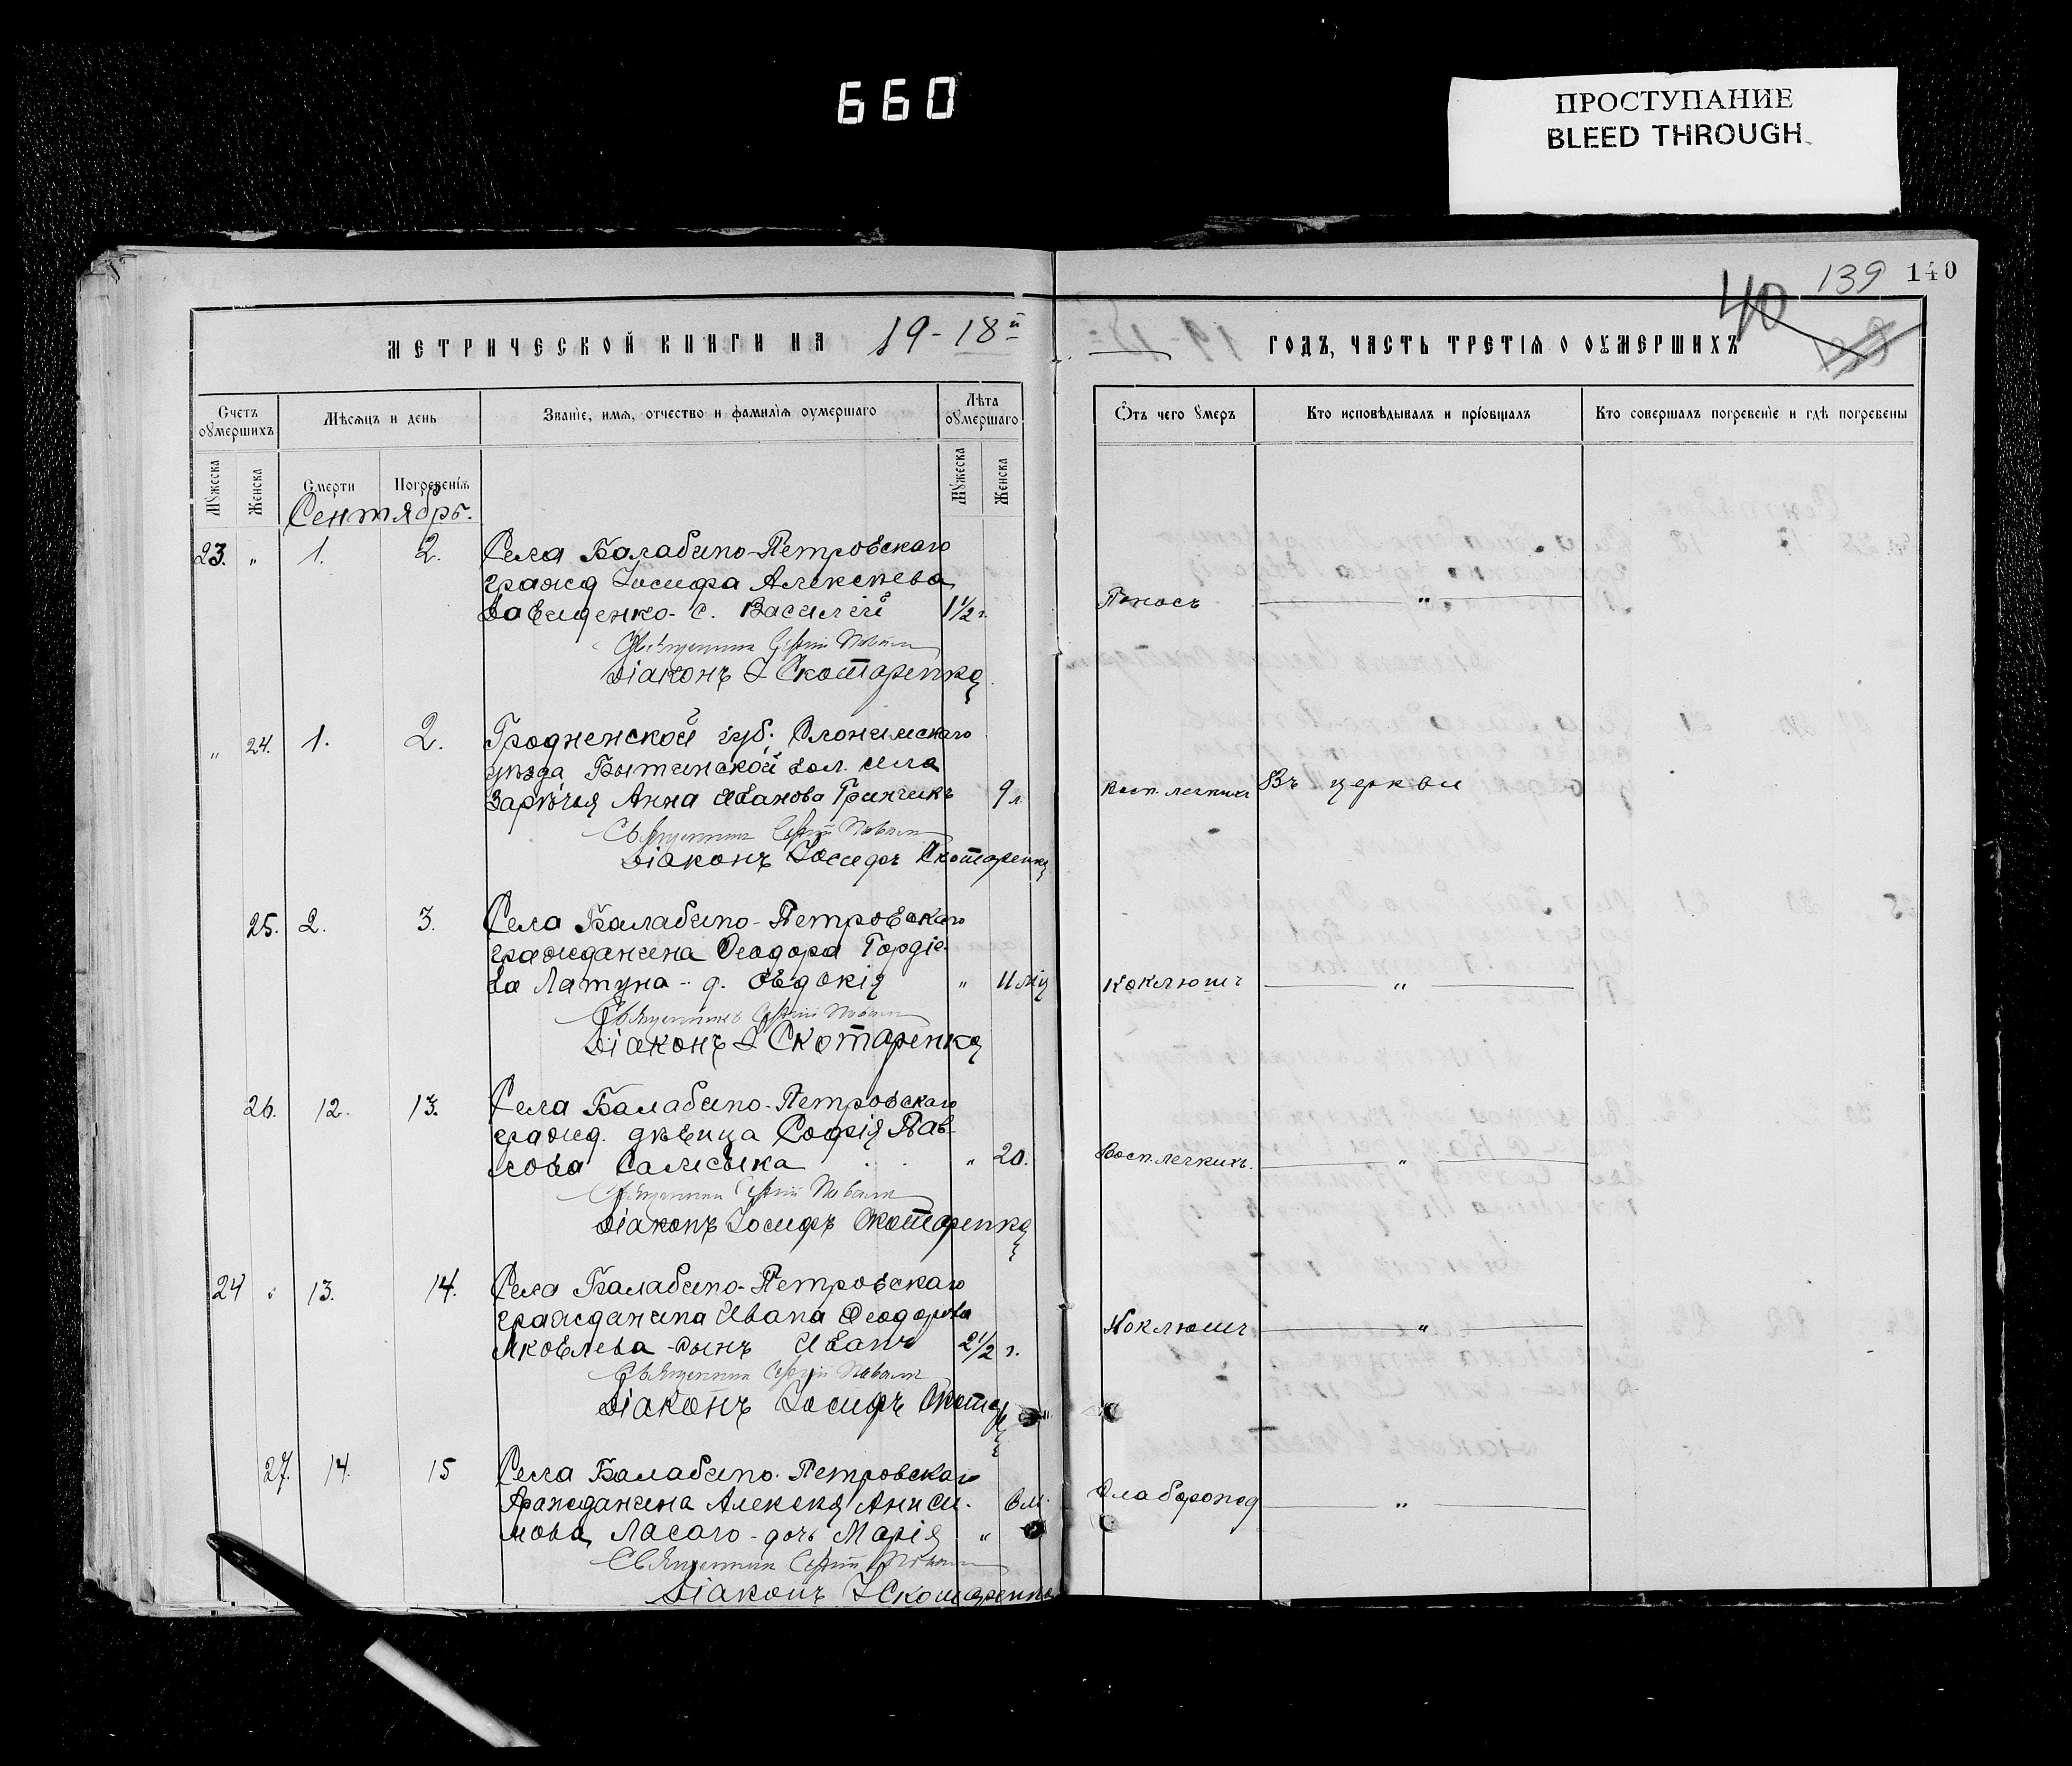 660
ПРОСТУПАНИЕ
BLEED THROUGH
139 140
40
МЕТРИЧЕСКОЙ КНИГИ НА 19-18й
ГОДЪ, ЧАСТЬ ТРЕТІЯ О ОУМЕРШИХЪ
Счетъ оумершихъ
Мѣсяцъ и день
Званіе, имя, отчество и фамилія оумершаго
Лѣта оумершаго
Отъ чего умеръ
Кто исповѣдывалъ и пріобщалъ
Кто совершалъ погребеніе и гдѣ погребены
Мужеска Женска Смерти Погребенія Мужеска Женска
Сентябрь.
23. " 1. 2. Села Балабино-Петровскаго
гражд Іосифа Алексѣева
Давиденко- с. Василій 1½ г. Поносъ "
Священникъ Сергій
Діаконъ І Скотаренко
" 24. 1. 2. Гродненской губ. Слонимскаго
уѣзда Бытинской вол. села
Зарѣчья Анна Иванова Гринчикъ 9 л Восп. легкихъ Въ церкви
Священникъ Сергій
Діаконъ Іосифъ Скотаренко
25. 2. 3. Села Балабино-Петровскаго
гражданина Ѳеодора Гордіе-
ва Латуна - д. Евдокія " 11 мѣс Коклюшъ "
Священникъ Сергій
Діаконъ І Скотаренко
26. 12. 13. Села Балабино-Петровскаго
гражд. дѣвица Софія Пав-
лова Салисыка " 20. Восп. легкихъ. "
Священникъ Сергій
Діаконъ Іосифъ Скотаренко
24 " 13. 14. Села Балабино-Петровскаго
гражданина Ивана Ѳеодорова
Яковлева - сынъ Иванъ 2½ г. Коклюшъ "
Священникъ Сергій
Діаконъ Іосифъ
27. 14. 15 Села Балабино-Петровскаго
Гражданина Алексѣя Аниси-
мова Ласаго - дочь Марія " 6 м. Слаборожд "
Священникъ Сергій
Діаконъ І Скотаренко